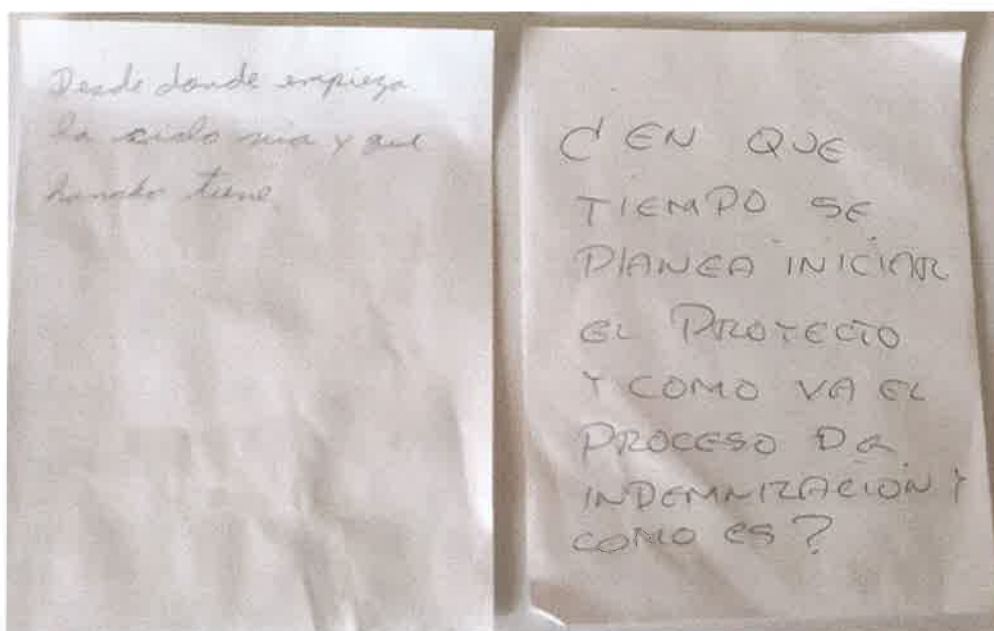 Desde donde empieza
la ciclo via y que
hancho tiene
¿EN QUE
TIEMPO SE
PLANEA INICIAR
EL PROYECTO
Y COMO VA EL
PROCESO DE
INDEMNIZACION Y
COMO ES?